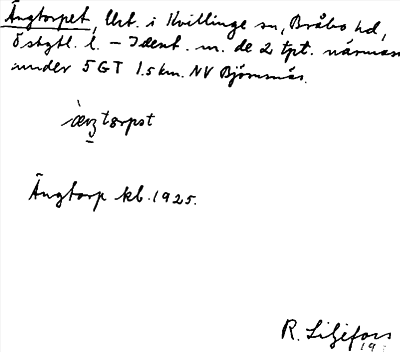 Ängtorpet, Urt. i Kvillinge sn, Bråbo hd,
Östgtl. l. – Ident. m. de 2 tpt. närmas
under 5 GT 1.5 km. NV Björnsnäs.
Ängtorp kb. 1925.
R. Liljefors
19